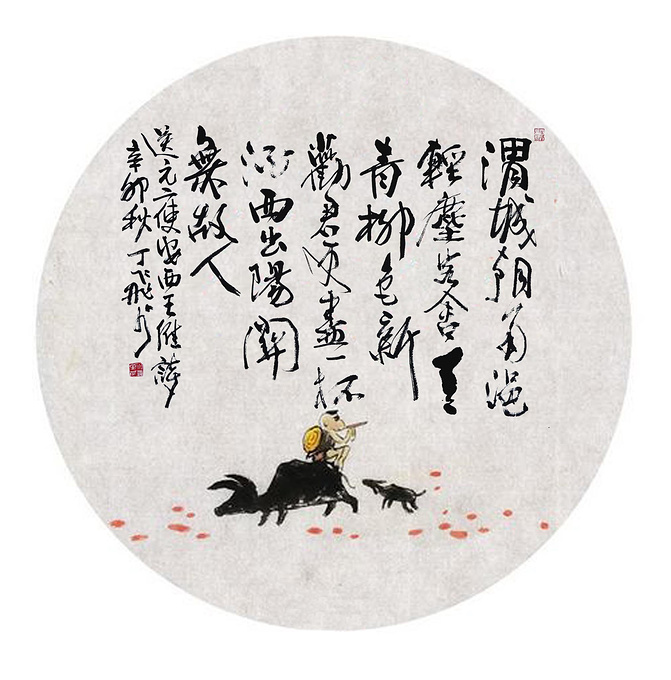 渭城朝雨浥
輕塵客舍青
青柳色新
勸君更盡一杯
酒西出陽關
無故人
送元二使安西王維詩
辛卯秋丁飛